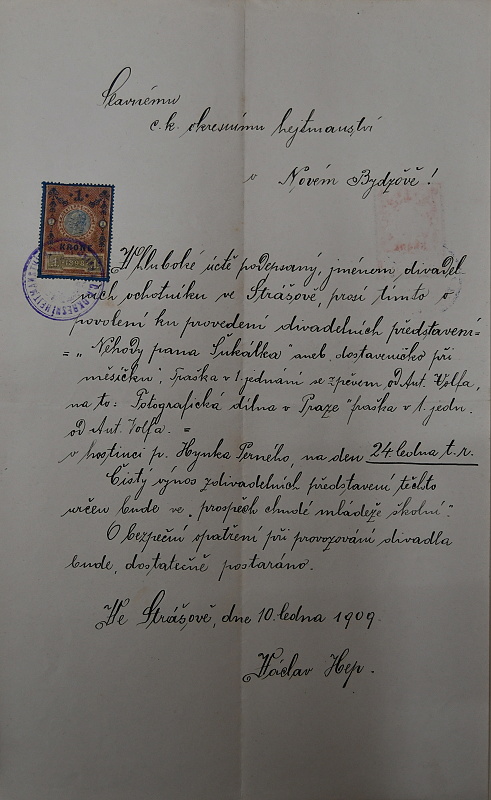 Slavnému
c. k. okresnímu hejtmanství
v Novém Bydžově!
1
KRONE
V hluboké úctě podepsaný, jménem divadel
ních ochotníku ve Strášově, prosí tímto o
povolení ku provedení divadelních představení =
= „Nehody pana Šukálka" aneb dostaveníčko při
měsíčku", fraška v 1. jednání se zpěvem od Ant. Volfa,
na to: Fotografická dílna v Praze" fraška v 1. jedn.
od Ant. Volfa. =
v hostinci p. Hynka Perného, na den 24 ledna t. r.
Čistý výnos zdivadelních představení těchto
určen bude ve „prospěch chudé mládeže školní".
O bezpeční opatření při provozování divadla
bude, dostatečně postaráno.
Ve Strášově, dne 10. ledna 1909.
Václav Hep.